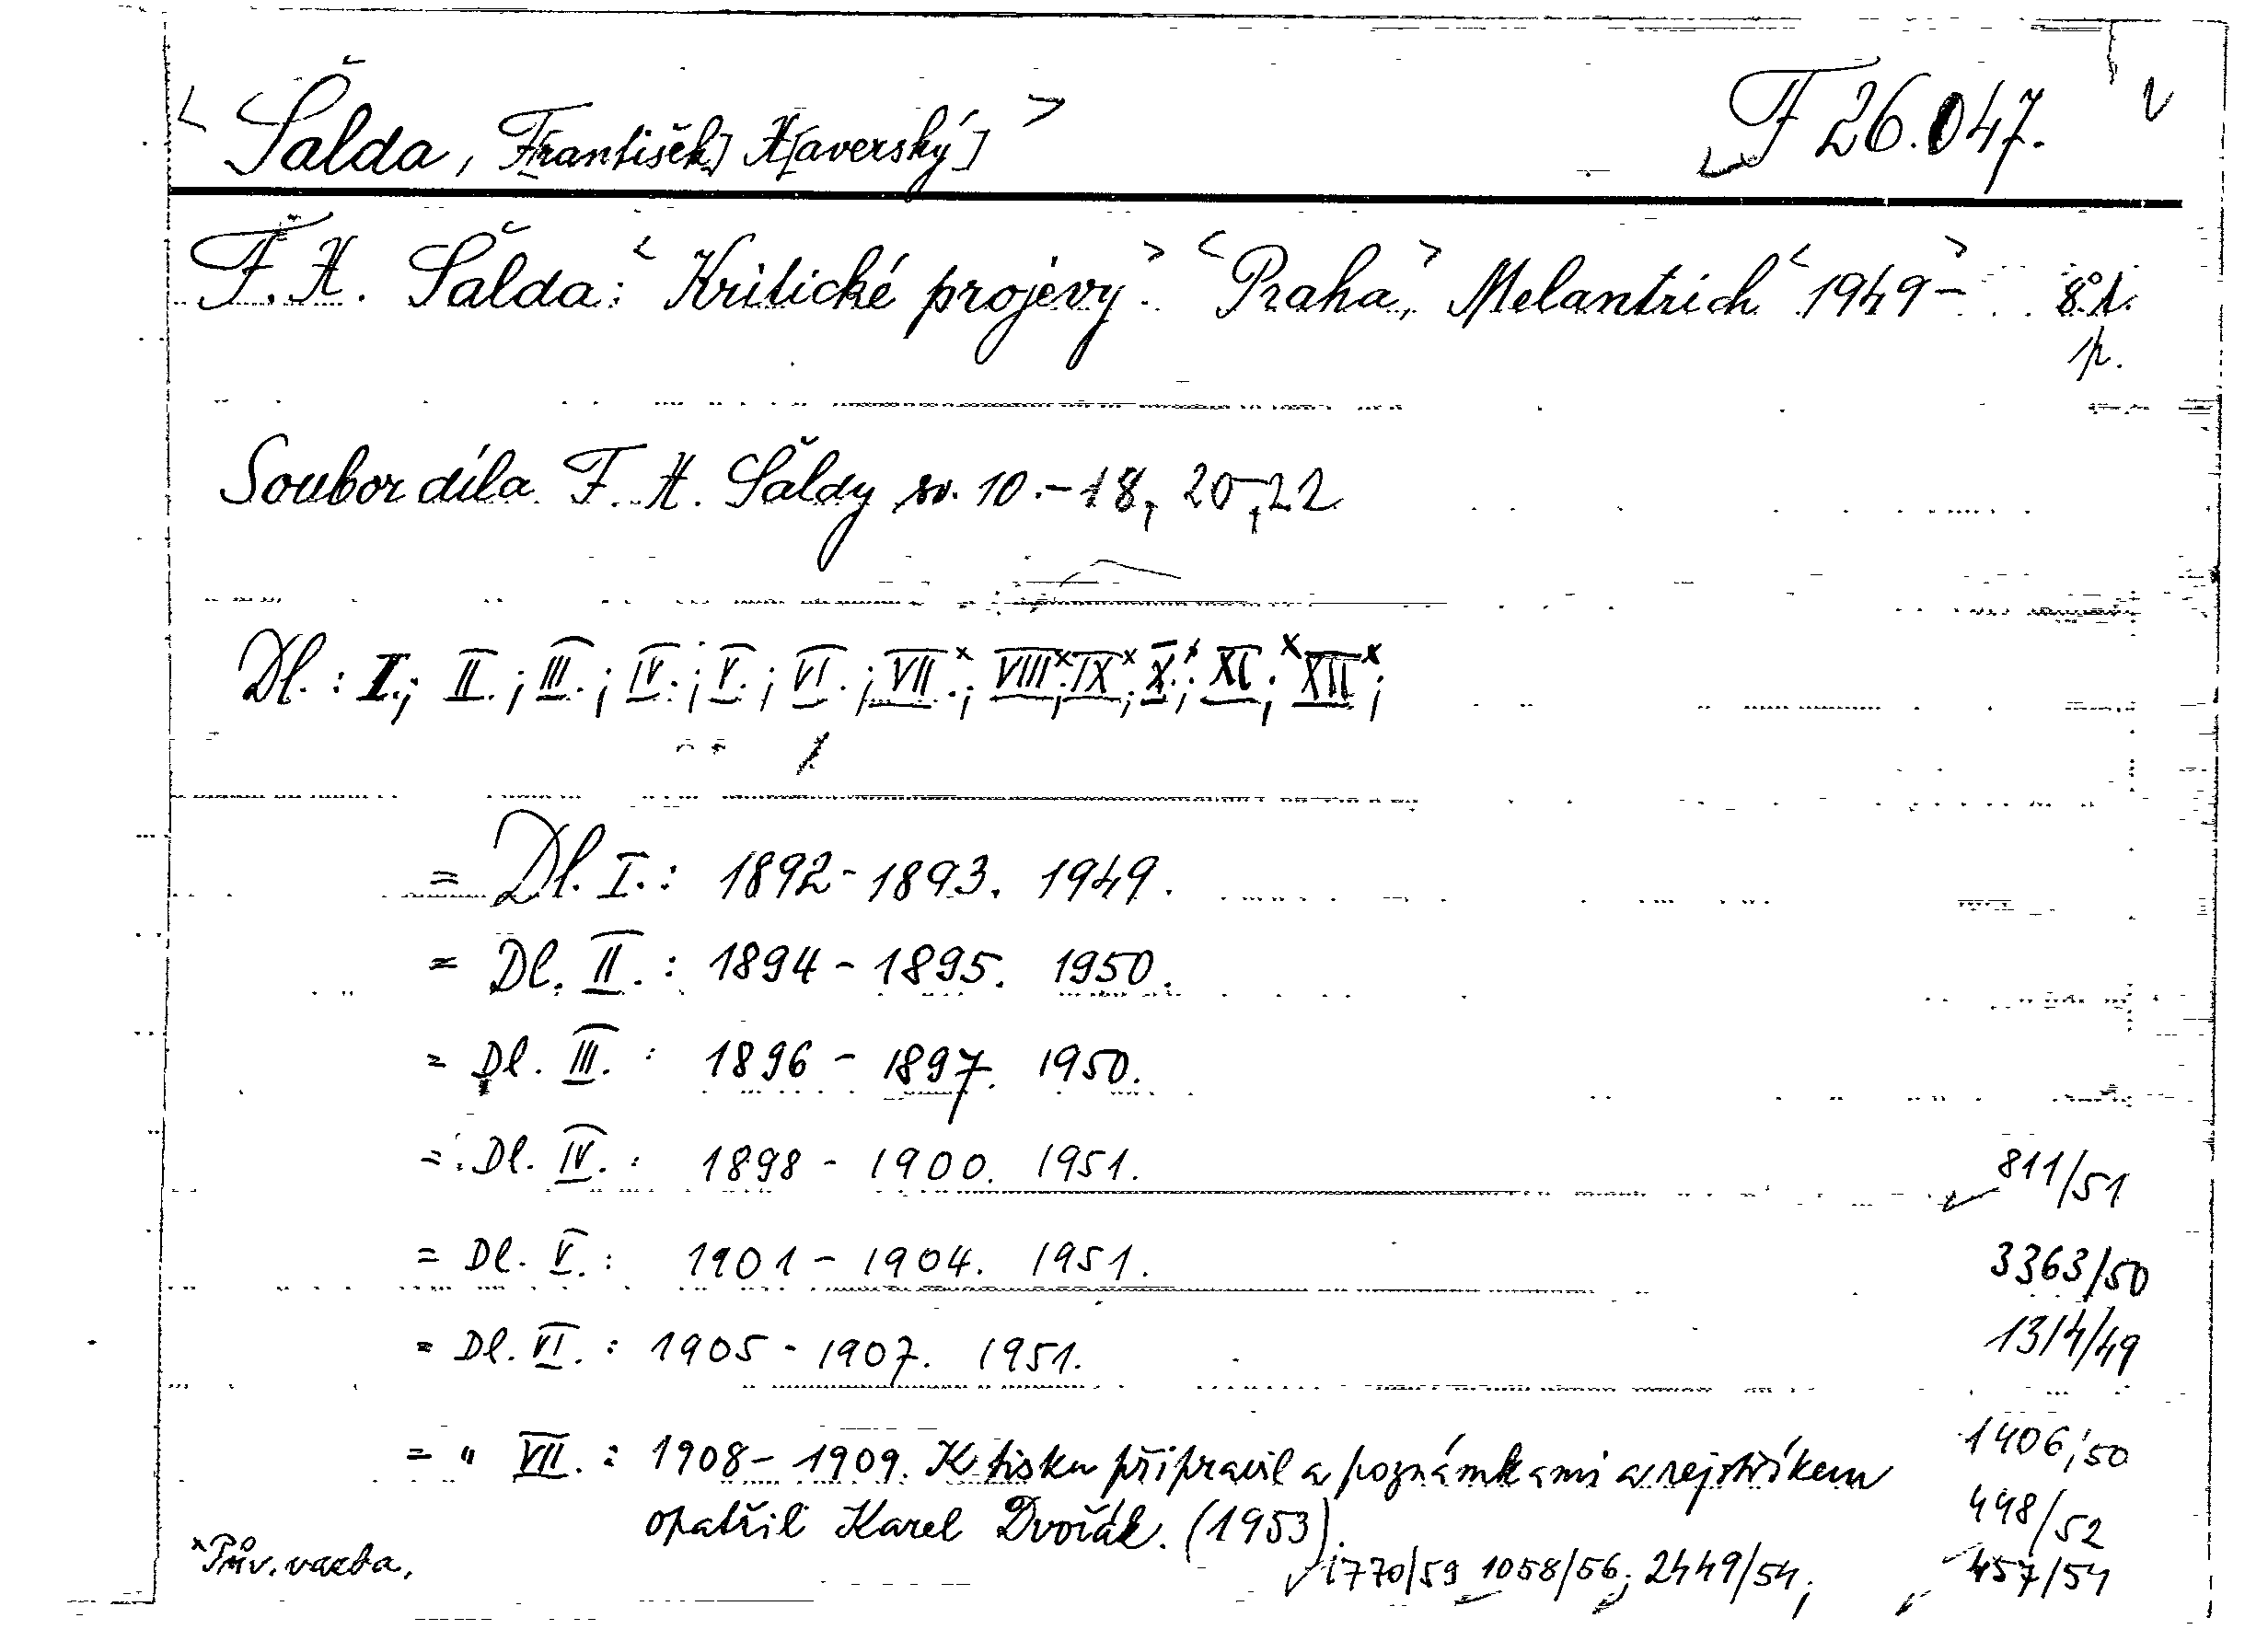 < Šalda, F[rantišek] X[averský] > F 26.047.
F. X. Šalda: < Kritické projevy. > < Praha, > Melantrich < 1949 - > 8°.
p.
Soubor díla F. X. Šaldy sv. 10.-18, 20, 22
Dl.: I.; II.; III.; IV.; V.; VI.; VII.x; VIII.x; IX.x; X.x; XI.x; XII.x;
= Dl. I.: 1892-1893. 1949.
= Dl. II.: 1894-1895. 1950.
= Dl. III.: 1896 - 1897. 1950.
= Dl. IV.: 1898 - 1900. 1951. 811/51
= Dl. V.: 1901 - 1904. 1951. 3363/50
= Dl. VI.: 1905 - 1907. 1951. 1314/49
= " VII.: 1908 - 1909. K tisku připravil a poznámkami a rejstříkem 1406/50
opatřil Karel Dvořák. (1953). 498/52
x Pův. vazba. 1770/59 1058/56; 2449/54; 457/54